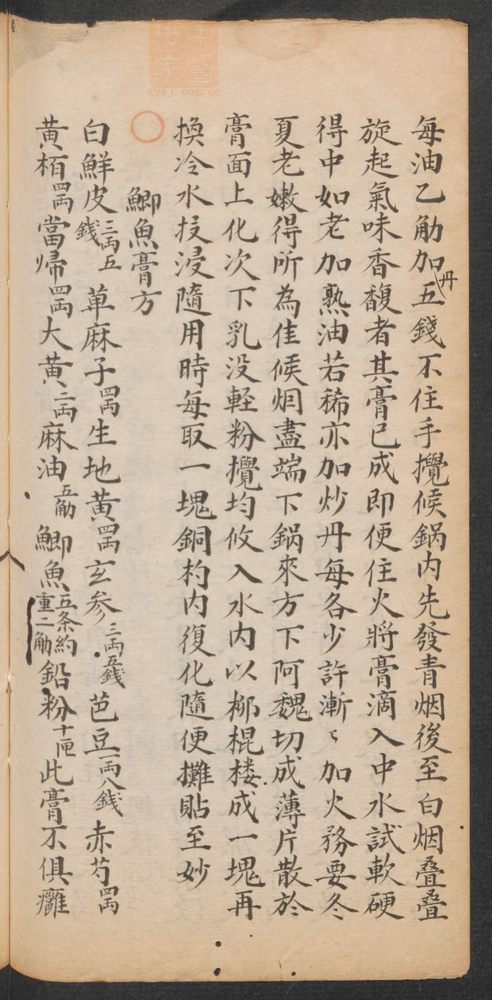 每油乙觔加丹五錢不住手攪候鍋内先發青烟後至白烟叠叠
旋起氣味香馥者其膏已成即便住火將膏滴入中水試軟硬
得中如老加熟油若稀亦加炒丹每各少許漸〻加火務要冬
夏老嫩得所為佳候烟盡端下鍋來方下阿魏切成薄片散於
膏面上化次下乳没軽粉攪均攸入水内以柳棍摟成一塊再
換冷水扳浸隨用時每取一塊銅杓内復化隨便攤貼至妙
〇鯽魚膏方
白鮮皮三両五錢 萆麻子四両 生地黄四両 玄参三両五錢 芭豆一両八錢 赤芍四両
黄栢四両 當帰四両 大黄二両 麻油五觔 鯽魚五条約重二觔 鉛粉十匣 此膏不俱癰